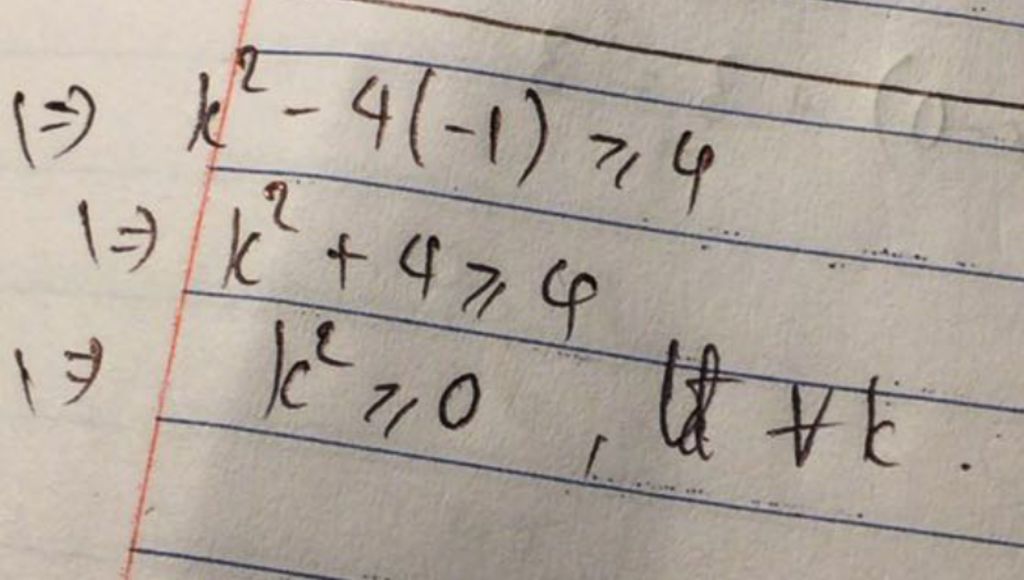 ⇔ k² - 4(-1) ⩾ 4
⇔ k² + 4 ⩾ 4
⇔ k² ⩾ 0 , ∀ k .